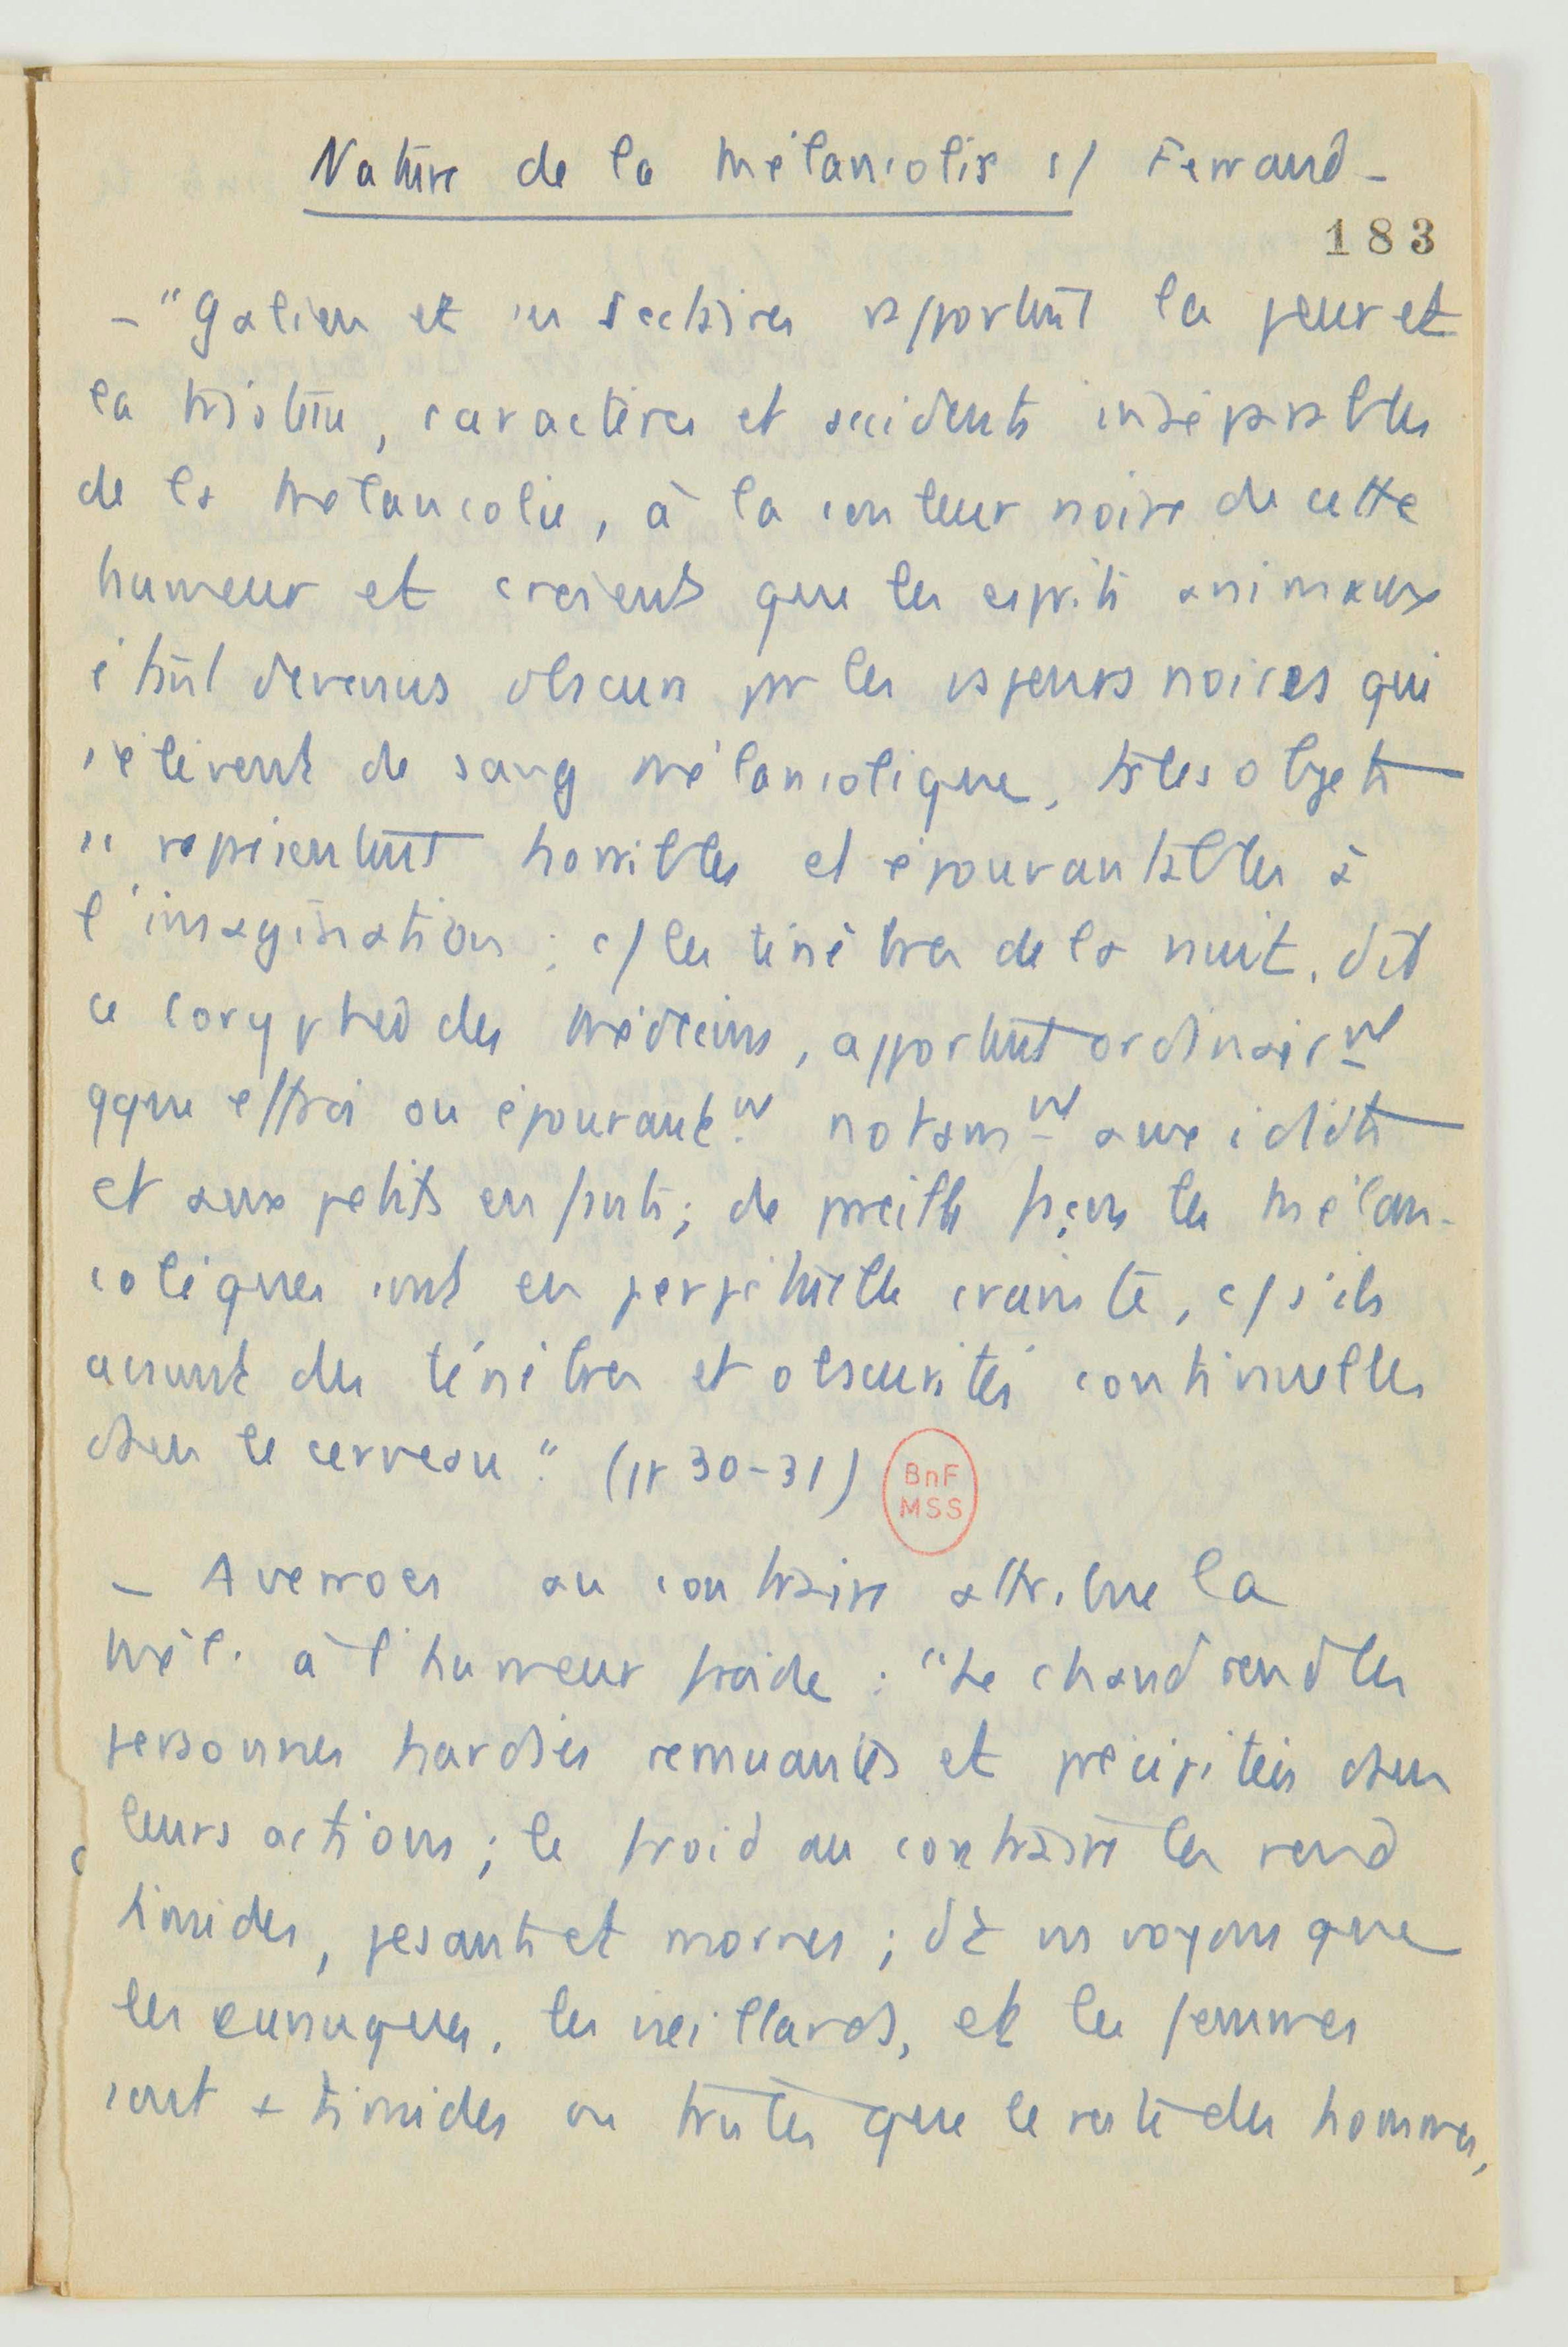 Nature de la mélancolie c/ Ferrand -
183
- "Galien et ses sectaires rapportent la peur et
la tristesse, caractères et accidents inséparables
de la mélancolie, à la couleur noire de cette
humeur et croient que les esprits animaux
étant devenus obscurs par les vapeurs noires qui
s'élèvent de sang mélancolique, ts les objets
se représentent horribles et épouvantables à
l'imagination ; c/ les ténèbres de la nuit, dit
ce coryphée des médecins, apportent ordinairmt
qque effroi ou épouvantemt notammt aux idiots
et aux petits enfants ; de pareille façon les mélan-
coliques sont en perpétuelle crainte, c/ s'ils
avaient des ténèbres et obscurités continuelles
dans le cerveau." (pp 30-31)
BnF
MSS
- Averroes au contraire attribue la
mél. à l'humeur froide : "Le chaud rend les
personnes hardies remuantes et précipitées dans
leurs actions ; le froid au contraire les rend
timides, pesants et mornes ; dt ns voyons que
les eunuques, les vieillards, et les femmes
sont + timides ou tristes que le reste des hommes,